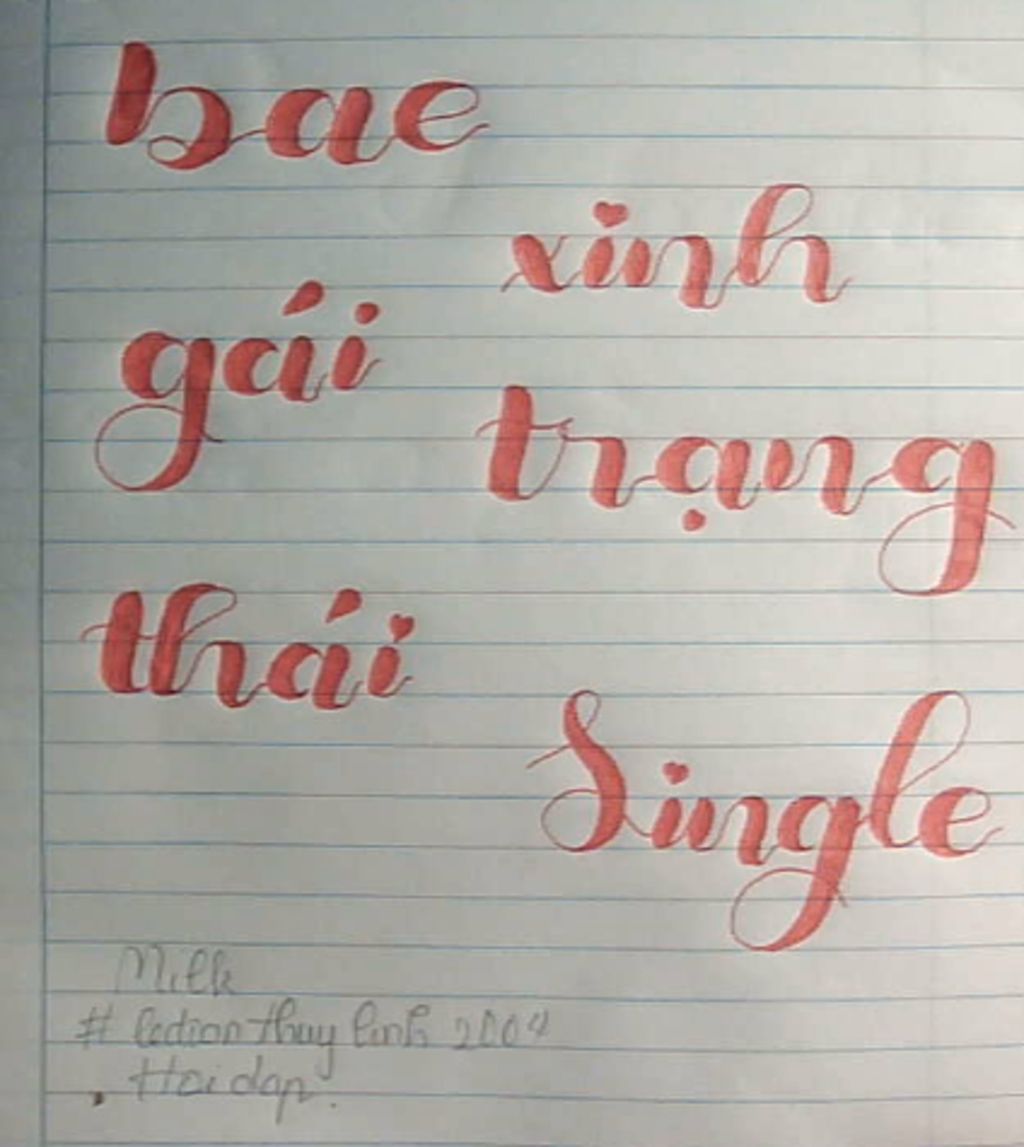 bae
xinh
gái
trạng
thái
Single
Milk
# ledionthuy linh 2004
Hoidap.